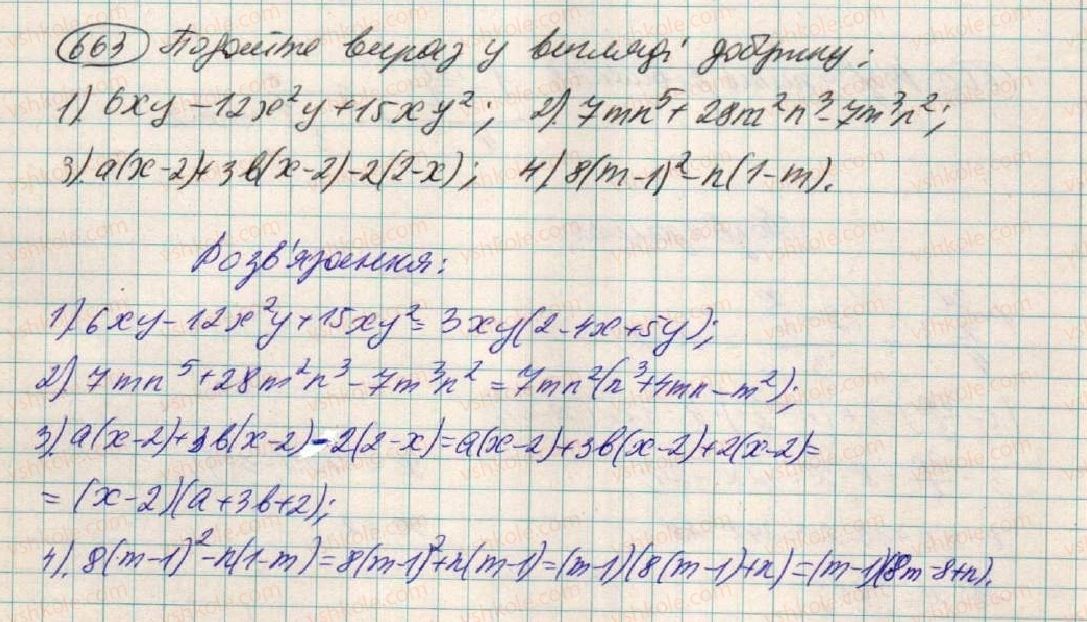 663 Подайте вираз у вигляді добутку:
1) 6xy - 12x²y + 15xy²; 2) 7mn⁵ + 28m²n³ - 7m³n²;
3) a(x-2) + 3b(x-2) - 2(2-x); 4) 8(m-1)² - n(1-m).
Розв'язання:
1) 6xy - 12x²y + 15xy² = 3xy(2 - 4x + 5y);
2) 7mn⁵ + 28m²n³ - 7m³n² = 7mn²(n³ + 4mn - m²);
3) a(x-2) + 3b(x-2) - 2(2-x) = a(x-2) + 3b(x-2) + 2(x-2) =
= (x-2)(a + 3b + 2);
4) 8(m-1)² - n(1-m) = 8(m-1)² + n(m-1) = (m-1)(8(m-1) + n) = (m-1)(8m - 8 + n).